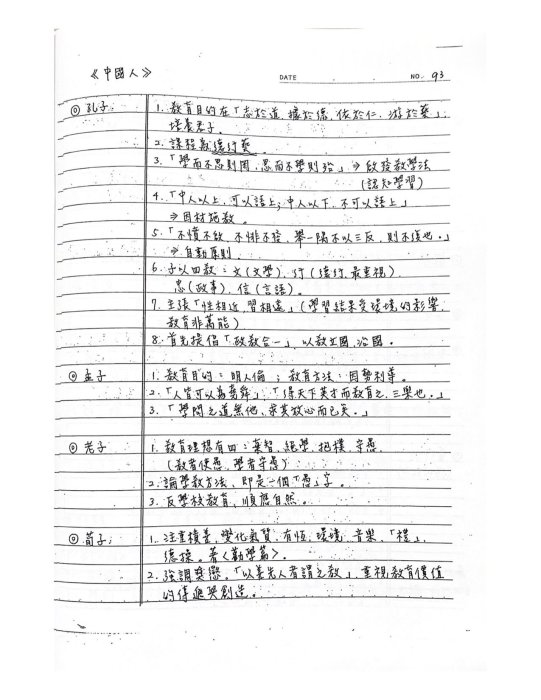 《中國人》
DATE NO. 93
◎ 孔子: 1. 教育目的在「志於道, 據於德, 依於仁, 游於藝」:
培養君子.
2. 課程為德行藝.
3. 「學而不思則罔, 思而不學則殆」⇒ 啟發教學法
(認知學習)
4. 「中人以上, 可以語上; 中人以下, 不可以語上」
⇒ 因材施教.
5. 「不憤不啟, 不悱不發, 舉一隅不以三反, 則不復也.」
⇒ 自動原則.
6. 子以四教: 文(文學), 行(德行, 最重視)
忠(政事), 信(言語).
7. 主張「性相近, 習相遠」(學習結果受環境的影響,
教育非萬能)
8. 首先提倡「政教合一」, 以教立國, 治國.
◎ 孟子 1. 教育目的: 明人倫; 教育方法: 因勢利導.
2. 「人皆可以為堯舜」;「得天下英才而教育之, 三樂也.」
3. 「學問之道無他, 求其放心而已矣.」
◎ 老子 1. 教育理想有四: 棄智, 絕學, 抱樸, 守愚.
(教者使愚, 學者守愚)
2. 論學教方法, 即是一個「愚」字.
3. 反學校教育, 順應自然.
◎ 荀子: 1. 注重積善, 變化氣質, 有恆, 環境, 音樂, 「禮」,
德操. 著<勸學篇>.
2. 強調獎懲.「以善先人者謂之教」, 重視教育價值
的傳遞與創造.